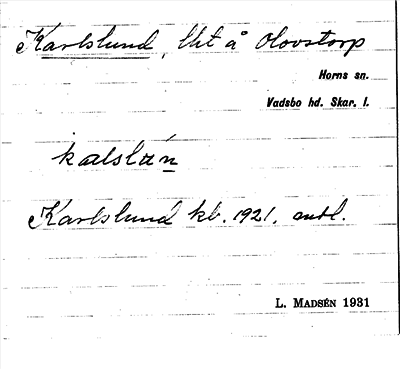 Karlslund, lht å Olovstorp
Horns sn.
Vadsbo hd. Skar. l.
kalslán
Karlslund kb. 1921. mtl.
L. MADSÉN 1931